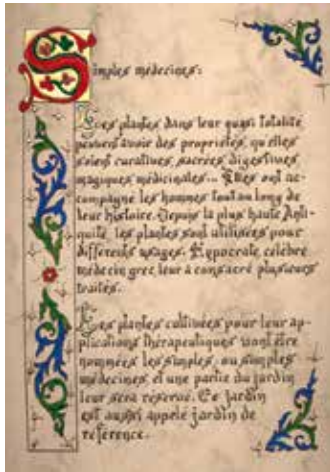 Simples médecines:
Les plantes dans leur quasi totalité
peuvent avoir des propriétés, qu'elles
soient curatives, sacrées, digestives,
magiques, médicinales... Elles ont ac-
compagné les hommes tout au long de
leur histoire. Depuis la plus haute Anti-
quité, les plantes sont utilisées pour
différents usages. Hypocrate, célèbre
médecin grec leur a consacré plusieurs
traités.
Les plantes cultivées pour leur ap-
plications thérapeutiques vont être
nommées les simples, ou simples
médecines, et une partie du jardin
leur sera réservé. Ce jardin
est aussi appelé jardin de
référence.